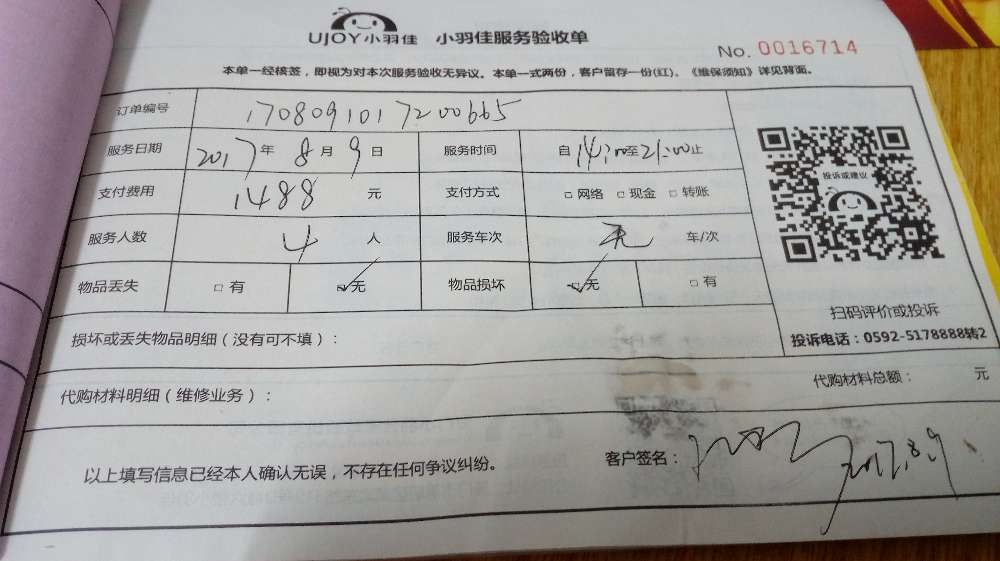 UJOY小羽佳 小羽佳服务验收单
No. 0016714
本单一经核签，即视为对本次服务验收无异议。本单一式两份，客户留存一份(红)。《维保须知》详见背面。
订单编号 1708091017200665
服务日期 2017年8月9日 服务时间 自14:00至21:00止
支付费用 1488元 支付方式 □网络 □现金 □转账
服务人数 4人 服务车次 无 车/次
物品丢失 □有 ☑无 物品损坏 ☑无 □有
投诉或建议
扫码评价或投诉
投诉电话：0592-5178888转2
损坏或丢失物品明细（没有可不填）：
代购材料明细（维修业务）： 代购材料总额： 元
以上填写信息已经本人确认无误，不存在任何争议纠纷。 客户签名： 2017.8.9